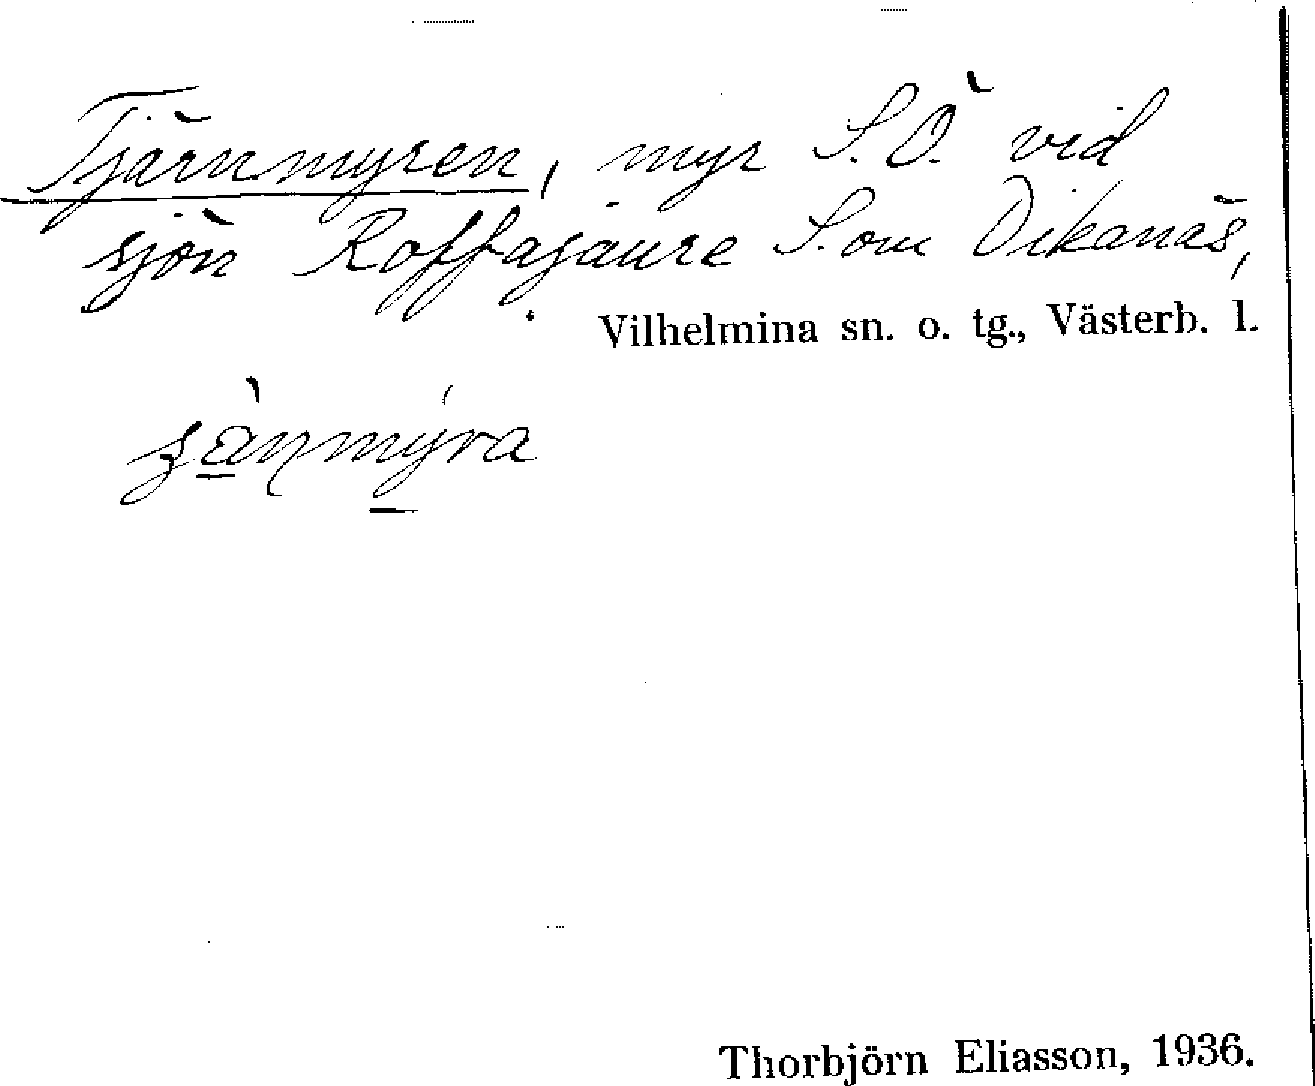 Tjärnmyren, myr S.Ö. vid
sjön Roffajaure S. om Dikanäs,
Vilhelmina sn. o. tg., Västerb. l.
Thorbjörn Eliasson, 1936.